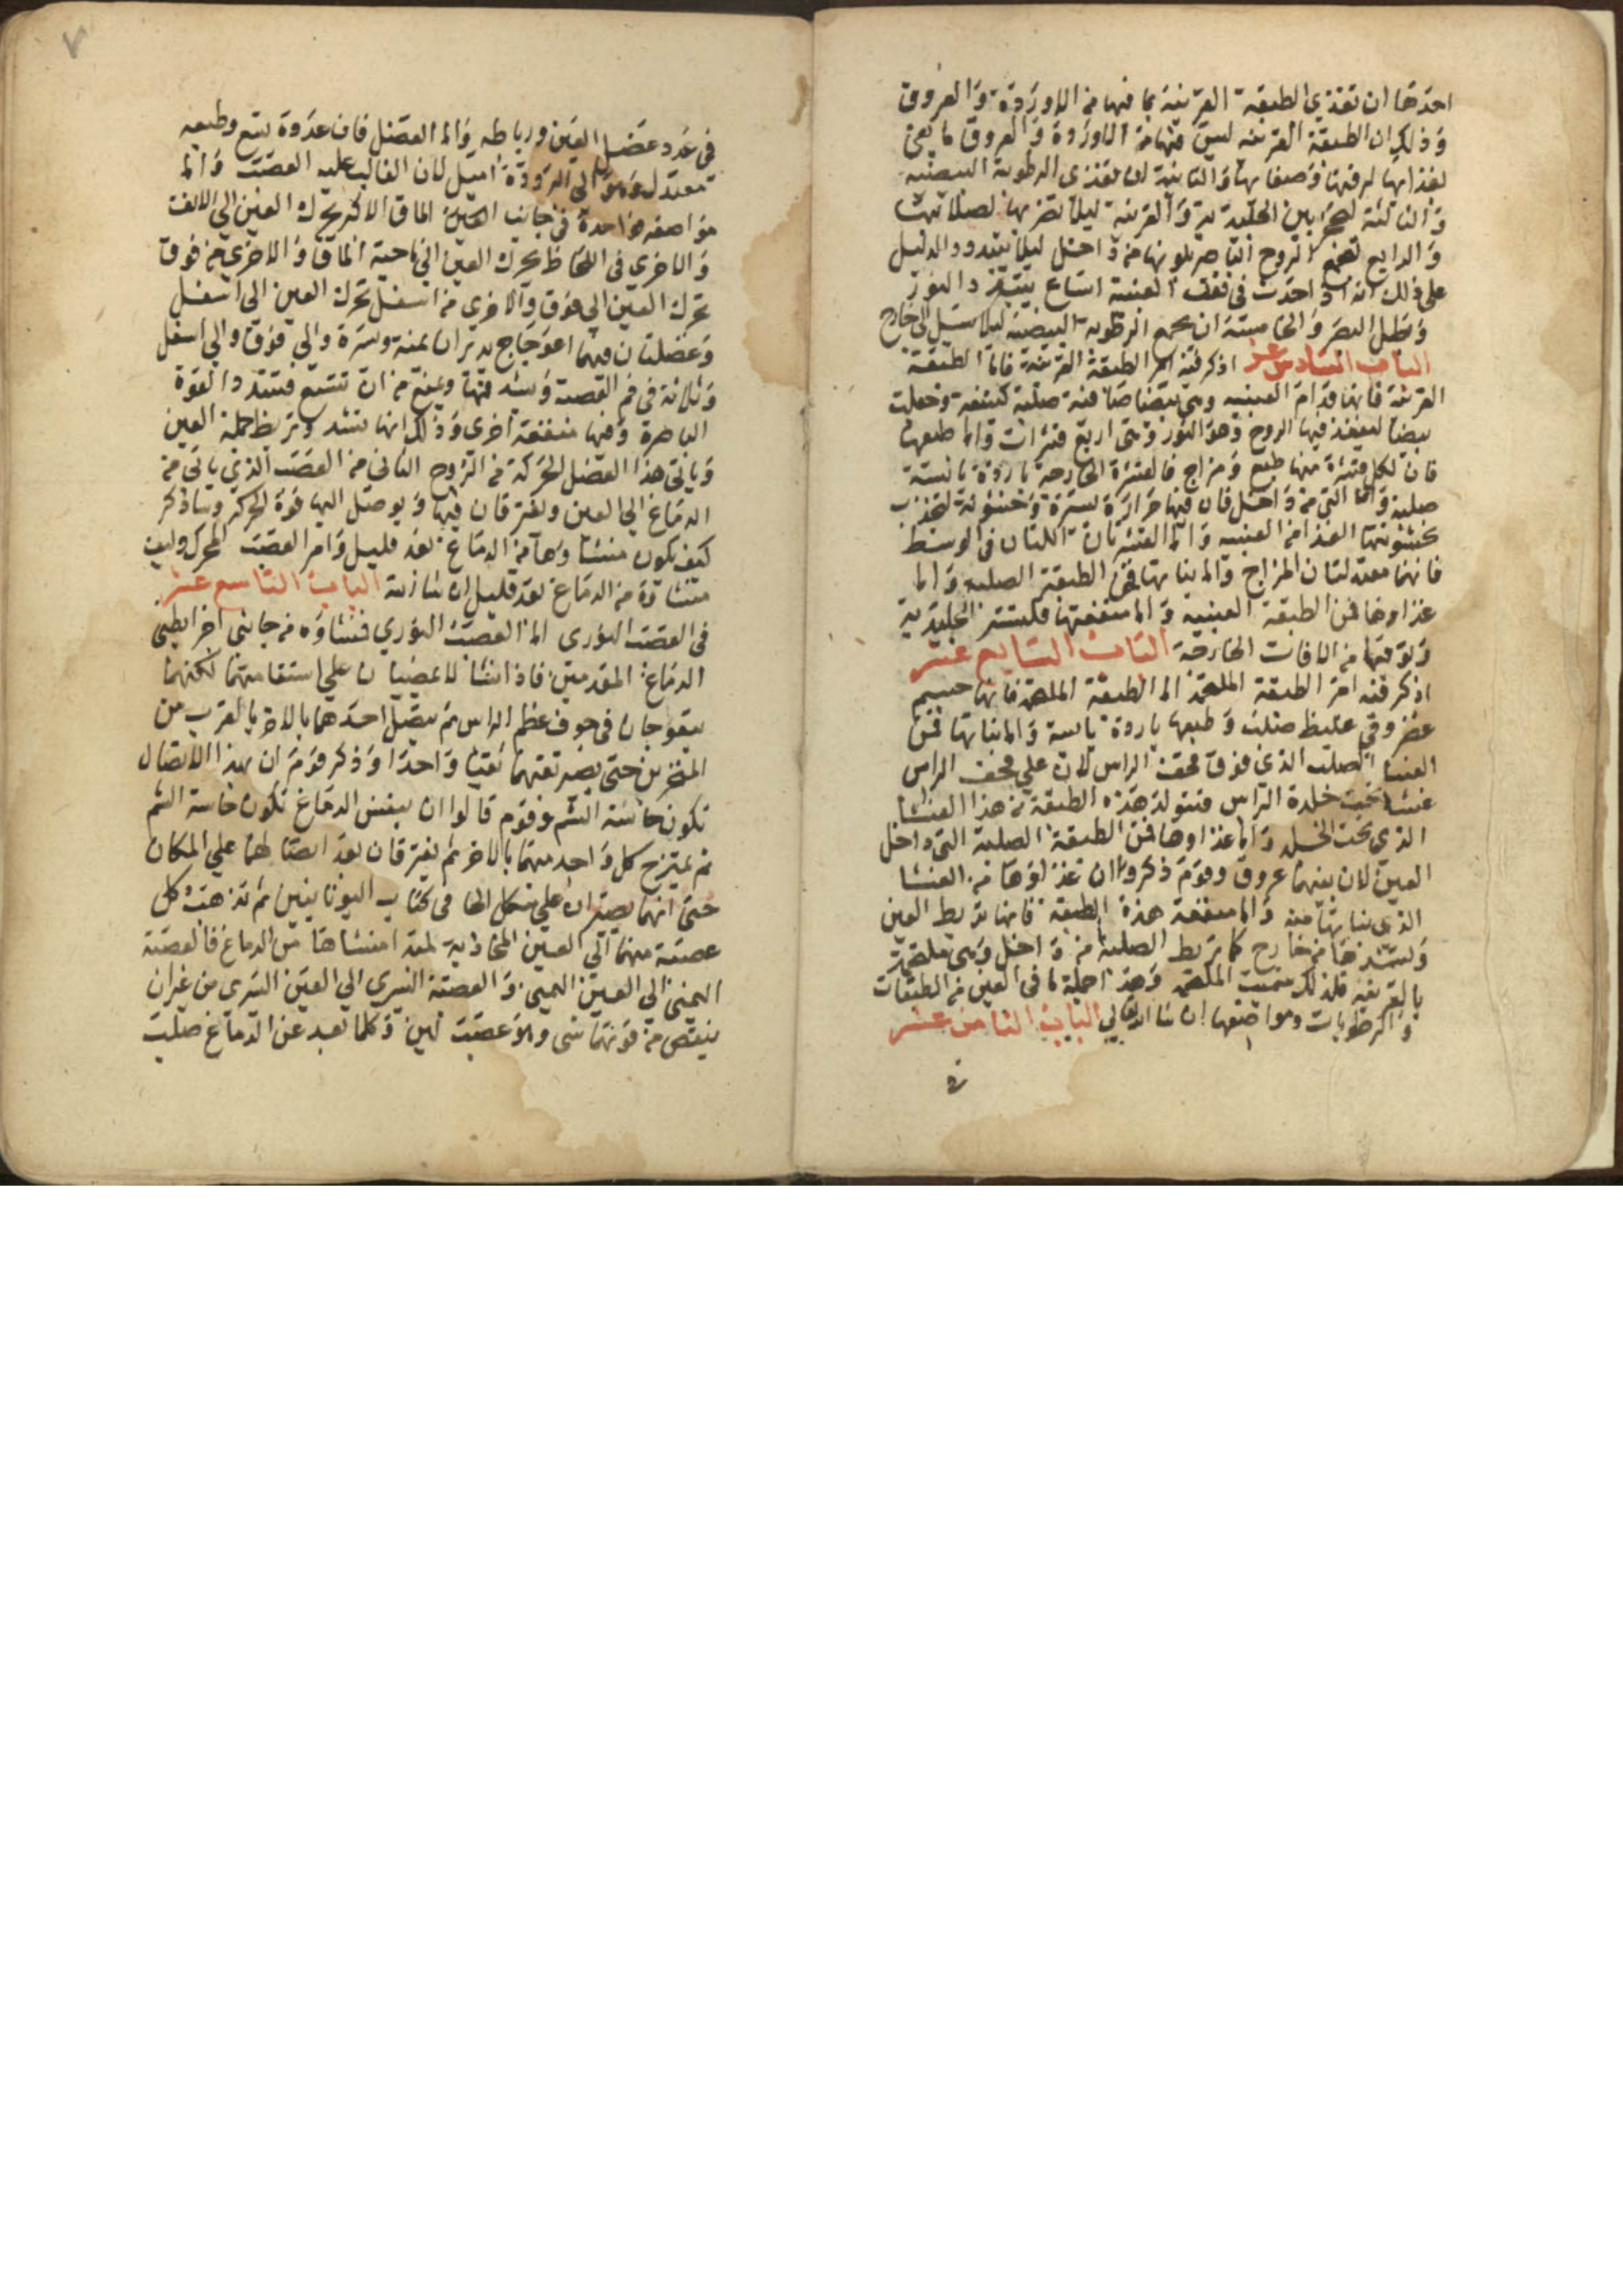 احدها ان تغذي الطبقة القرنية بما فيها من الاوردة والعروق
وذلك ان الطبقة القرنية ليس فيها من الاوردة والعروق ما يفي
بغذايها لرقتها وصفايها والثانية ان تغذي الرطوبة البيضية
والثالثة لتحجز بين الجليدية والقرنية ليلا تضر بها لصلابتها
والرابع لتجمع الروح الباصر بلونها من داخل ليلا يتبدد والدليل
على ذلك انه اذا حدث في ثقب العنبية اتساع يتبدد النور
وبطل البصر والخامسة ان تجمع الرطوبة البيضية ليلا تسيل الى خارج
الباب السادس عشر اذكر فيه امر الطبقة القرنية فاما الطبقة
القرنية فانها قدام العنبية وهي بيضا صافية صلبة كثيفة وجعلت
بيضا لينفذ فيها الروح وهو النور وهي اربع قشرات واما طبعها
فان لكل قشرة منها طبع ومزاج فالقشرة الخارجة باردة يابسة
صلبة واما التي من داخل فان فيها حرارة يسيرة وخشونة لتجذب
بخشونتها الغذا من العنبية واما القشرتان اللتان في الوسط
فانهما معتدلتان المزاج واما نباتها فمن الطبقة الصلبة واما
غذاوها فمن الطبقة العنبية واما منفعتها فلتستر الجليدية
وتوقيها من الافات الخارجة الباب السابع عشر
اذكر فيه امر الطبقة الملتحمة اما الطبقة الملتحمة فانها جسم
غضروفي غليظ صلب وطبعها باردة يابسة واما نباتها فمن
الغشا الصلب الذي فوق قحف الراس لان علي قحف الراس
غشا تحت جلدة الراس فتتولد هذه الطبقة من هذا الغشا
الذي تحت الجلد واما غذاوها فمن الطبقة الصلبة التي داخل
العين لان بينهما عروق وقوم ذكروا ان غذاوها من الغشا
الذي نباتها منه واما منفعة هذه الطبقة فانها تربط العين
وتشدها من خارج كما تربط الصلبة من داخل وهي ملتحمة
بالقرنية فلذلك سميت الملتحمة وهذا جملة ما في العين من الطبقات
والرطوبات ومواضعها ان شا الله تعالي الباب الثامن عشر
في
٧
في عدد عضل العين ورباطه واما العضل فان عدده تسع وطبعه
معتدل وهو الى البرودة اميل لان الغالب عليه العصب واما
مواضعه فواحدة في جانب العين الماق الاكبر تحرك العين الي الانف
والاخرى في اللحاظ تحرك العين الي ناحية الماق والاخري من فوق
تحرك العين الي فوق والاخرى من اسفل تحرك العين الى اسفل
وعضلتان فيهما اعوجاج يديران يمنة ويسرة والي فوق والي اسفل
وثلاثة في فم القصبة وتشد فمها ويمنع من ان تتسع فتتبدد القوة
الباصرة وفيها منفعة اخرى وذلك انها تشد وتربط جملة العين
وياتى هذا العضل الحركة من الزوج الثاني من العصب الذي ياتي من
الدماغ الي العين ويفترقان فيها ويوصل اليها قوة الحركة وساذكر
كيف يكون منشاوهما من الدماغ بعد قليل وامر العصب المحرك وكيف
منشاوة من الدماغ بعد قليل ان شا الله الباب التاسع عشر
في العصب النوري اما العصب النوري فمنشاوه من جانبي اخر بطني
الدماغ المقدمين فاذا انشا لا يمضيان علي استقامتهما لكنهما
يتعوجان في جوف عظم الراس ثم يتصل احدهما بالاخر بالقرب من
المنخرين حتى يصير ثقبهما ثقبا واحدا وذكر قوم ان بهذا الاتصال
تكون حاسة الشم وقوم قالوا ان بنفس الدماغ تكون حاسة الشم
ثم يمتزج كل واحد منهما بالاخر ثم يفترقان بعد اتصالهما علي المكان
حتى انهما يصيران علي شكل الخا في كتاب اليونانيين ثم تذهب كل
عصبة منهما الي العين المحاذية لمبدا منشاها من الدماغ فالعصبة
اليمنى الي العين اليمنى والعصبة اليسري الي العين اليسرى من غير ان
ينقص من قوتهما شى والاعصب لين وكلما بعد عن الدماغ صلب